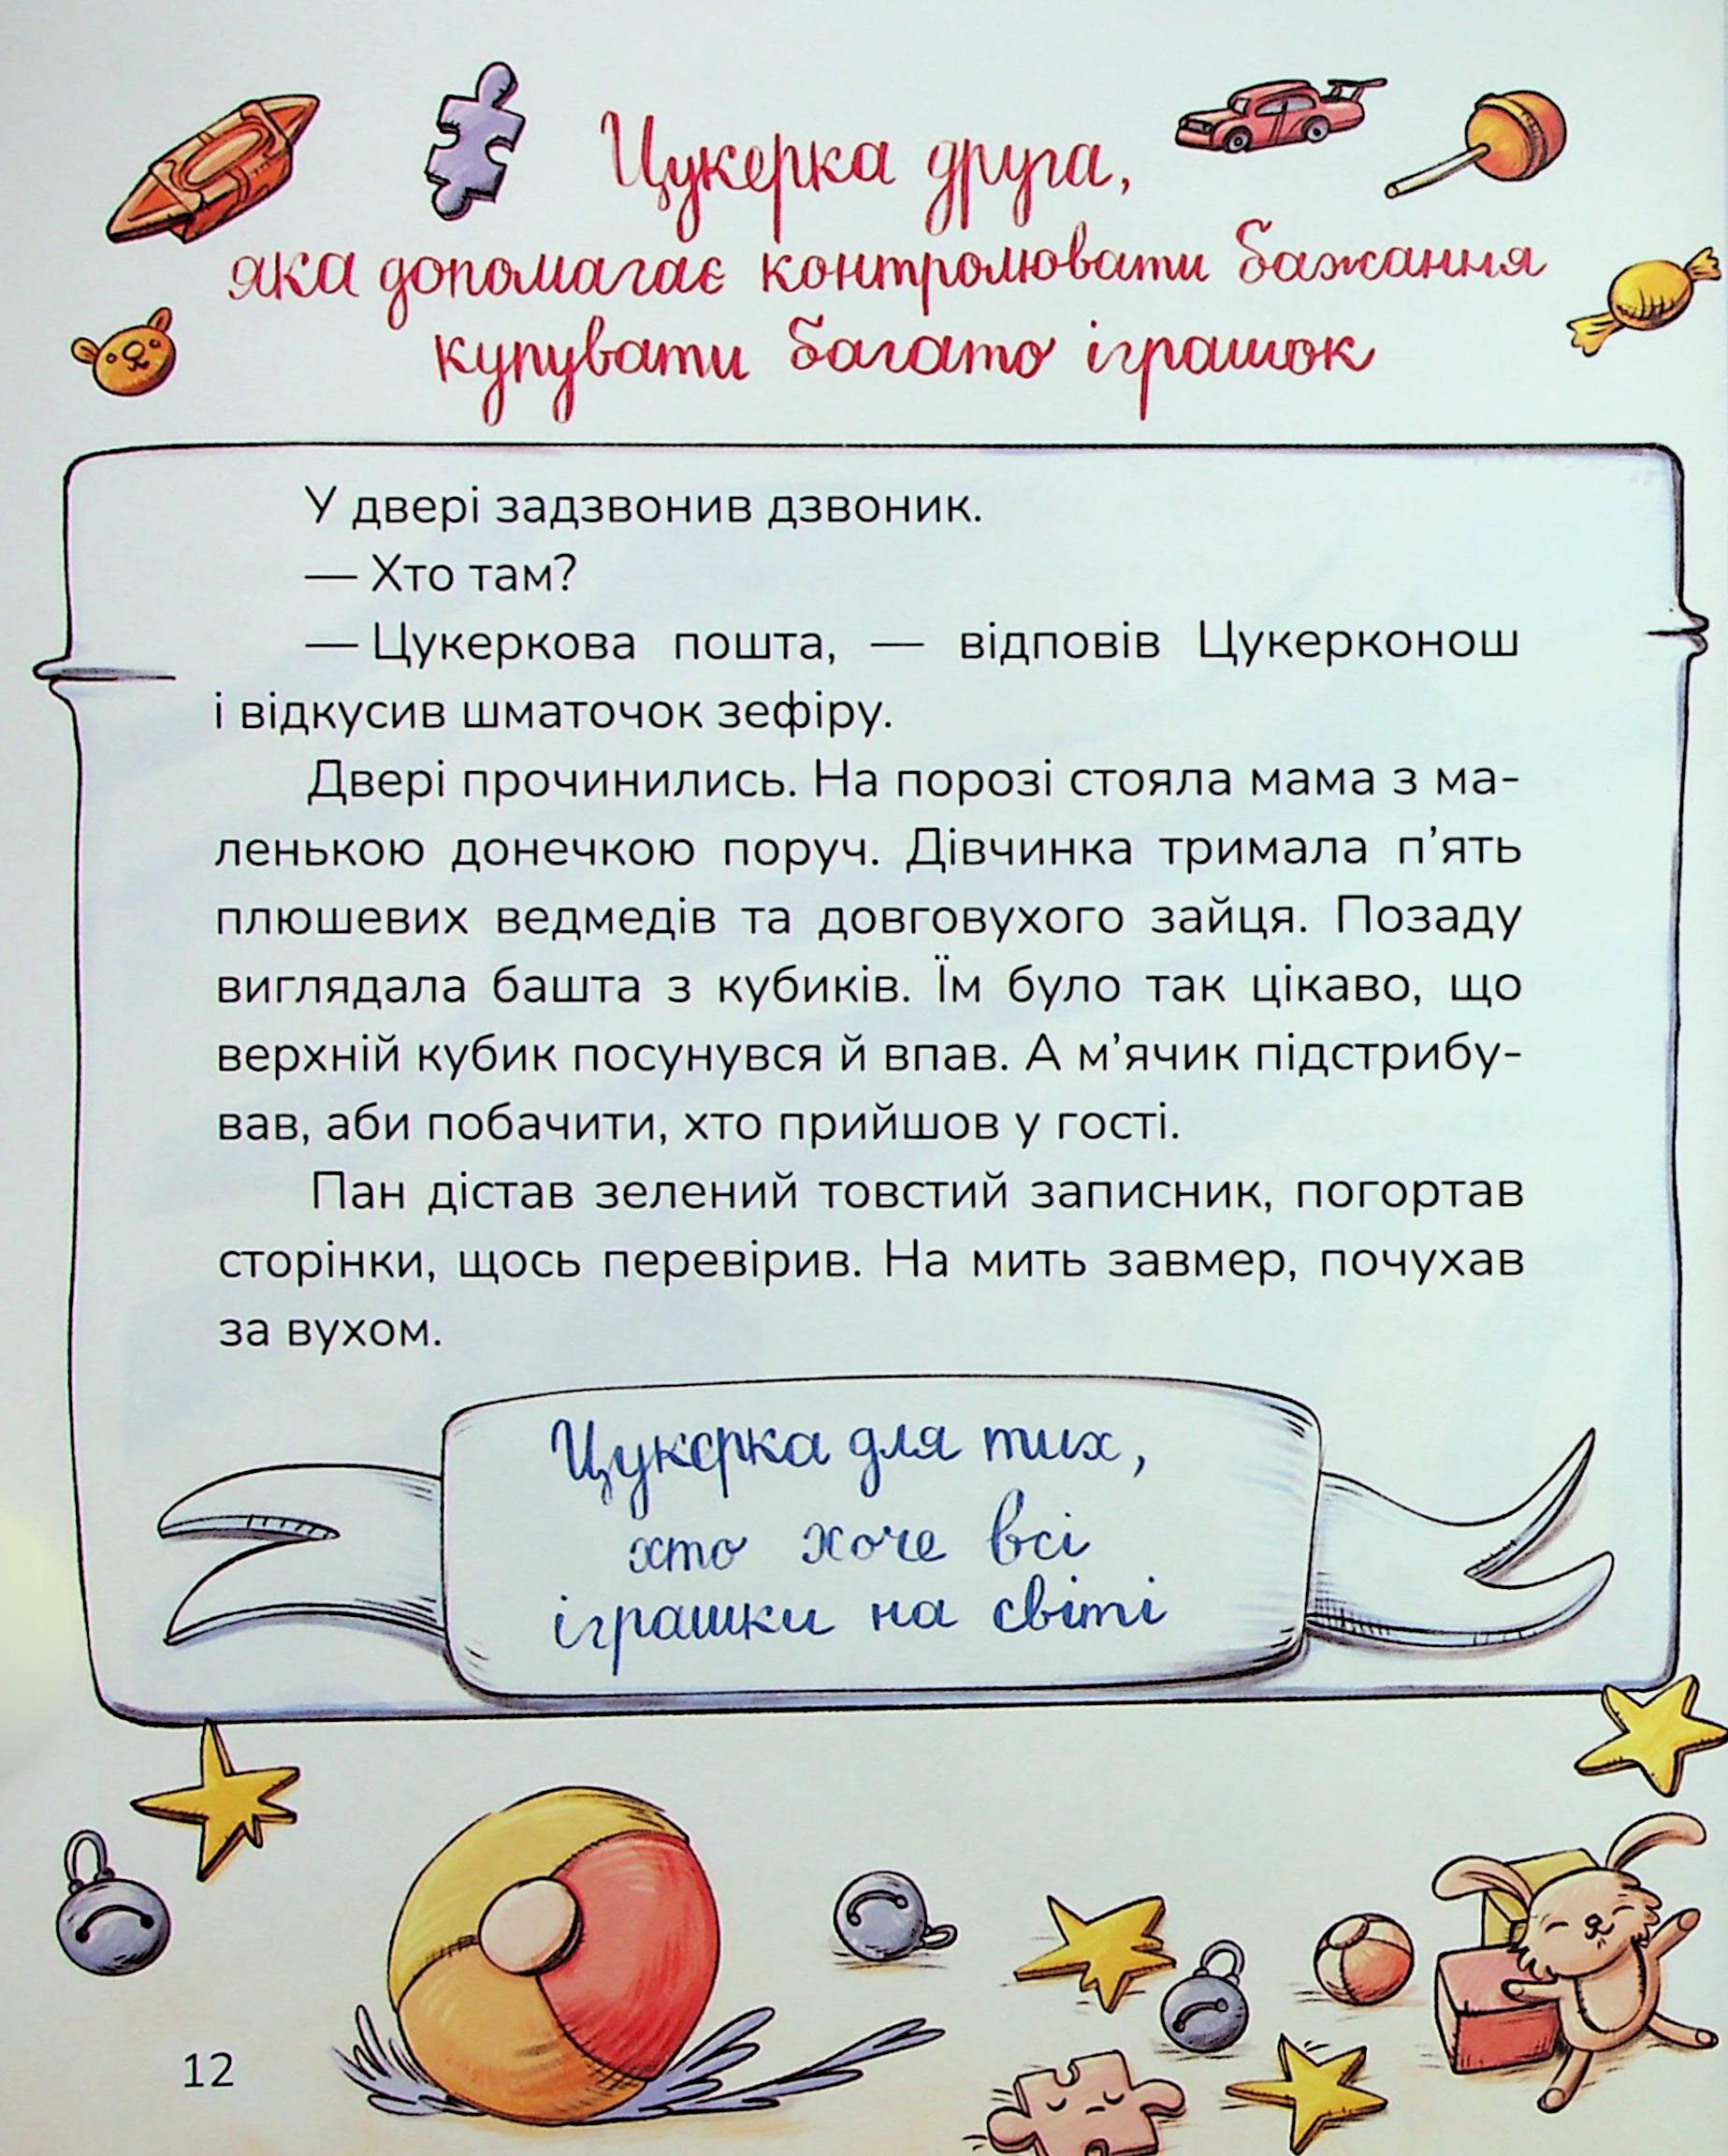 Цукерка друга,
яка допомагає контролювати бажання
купувати багато іграшок
У двері задзвонив дзвоник.
— Хто там?
— Цукеркова пошта, — відповів Цукерконош
і відкусив шматочок зефіру.
Двері прочинились. На порозі стояла мама з ма-
ленькою донечкою поруч. Дівчинка тримала п’ять
плюшевих ведмедів та довговухого зайця. Позаду
виглядала башта з кубиків. Їм було так цікаво, що
верхній кубик посунувся й впав. А м’ячик підстрибу-
вав, аби побачити, хто прийшов у гості.
Пан дістав зелений товстий записник, погортав
сторінки, щось перевірив. На мить завмер, почухав
за вухом.
Цукерка для тих,
хто хоче всі
іграшки на світі
12